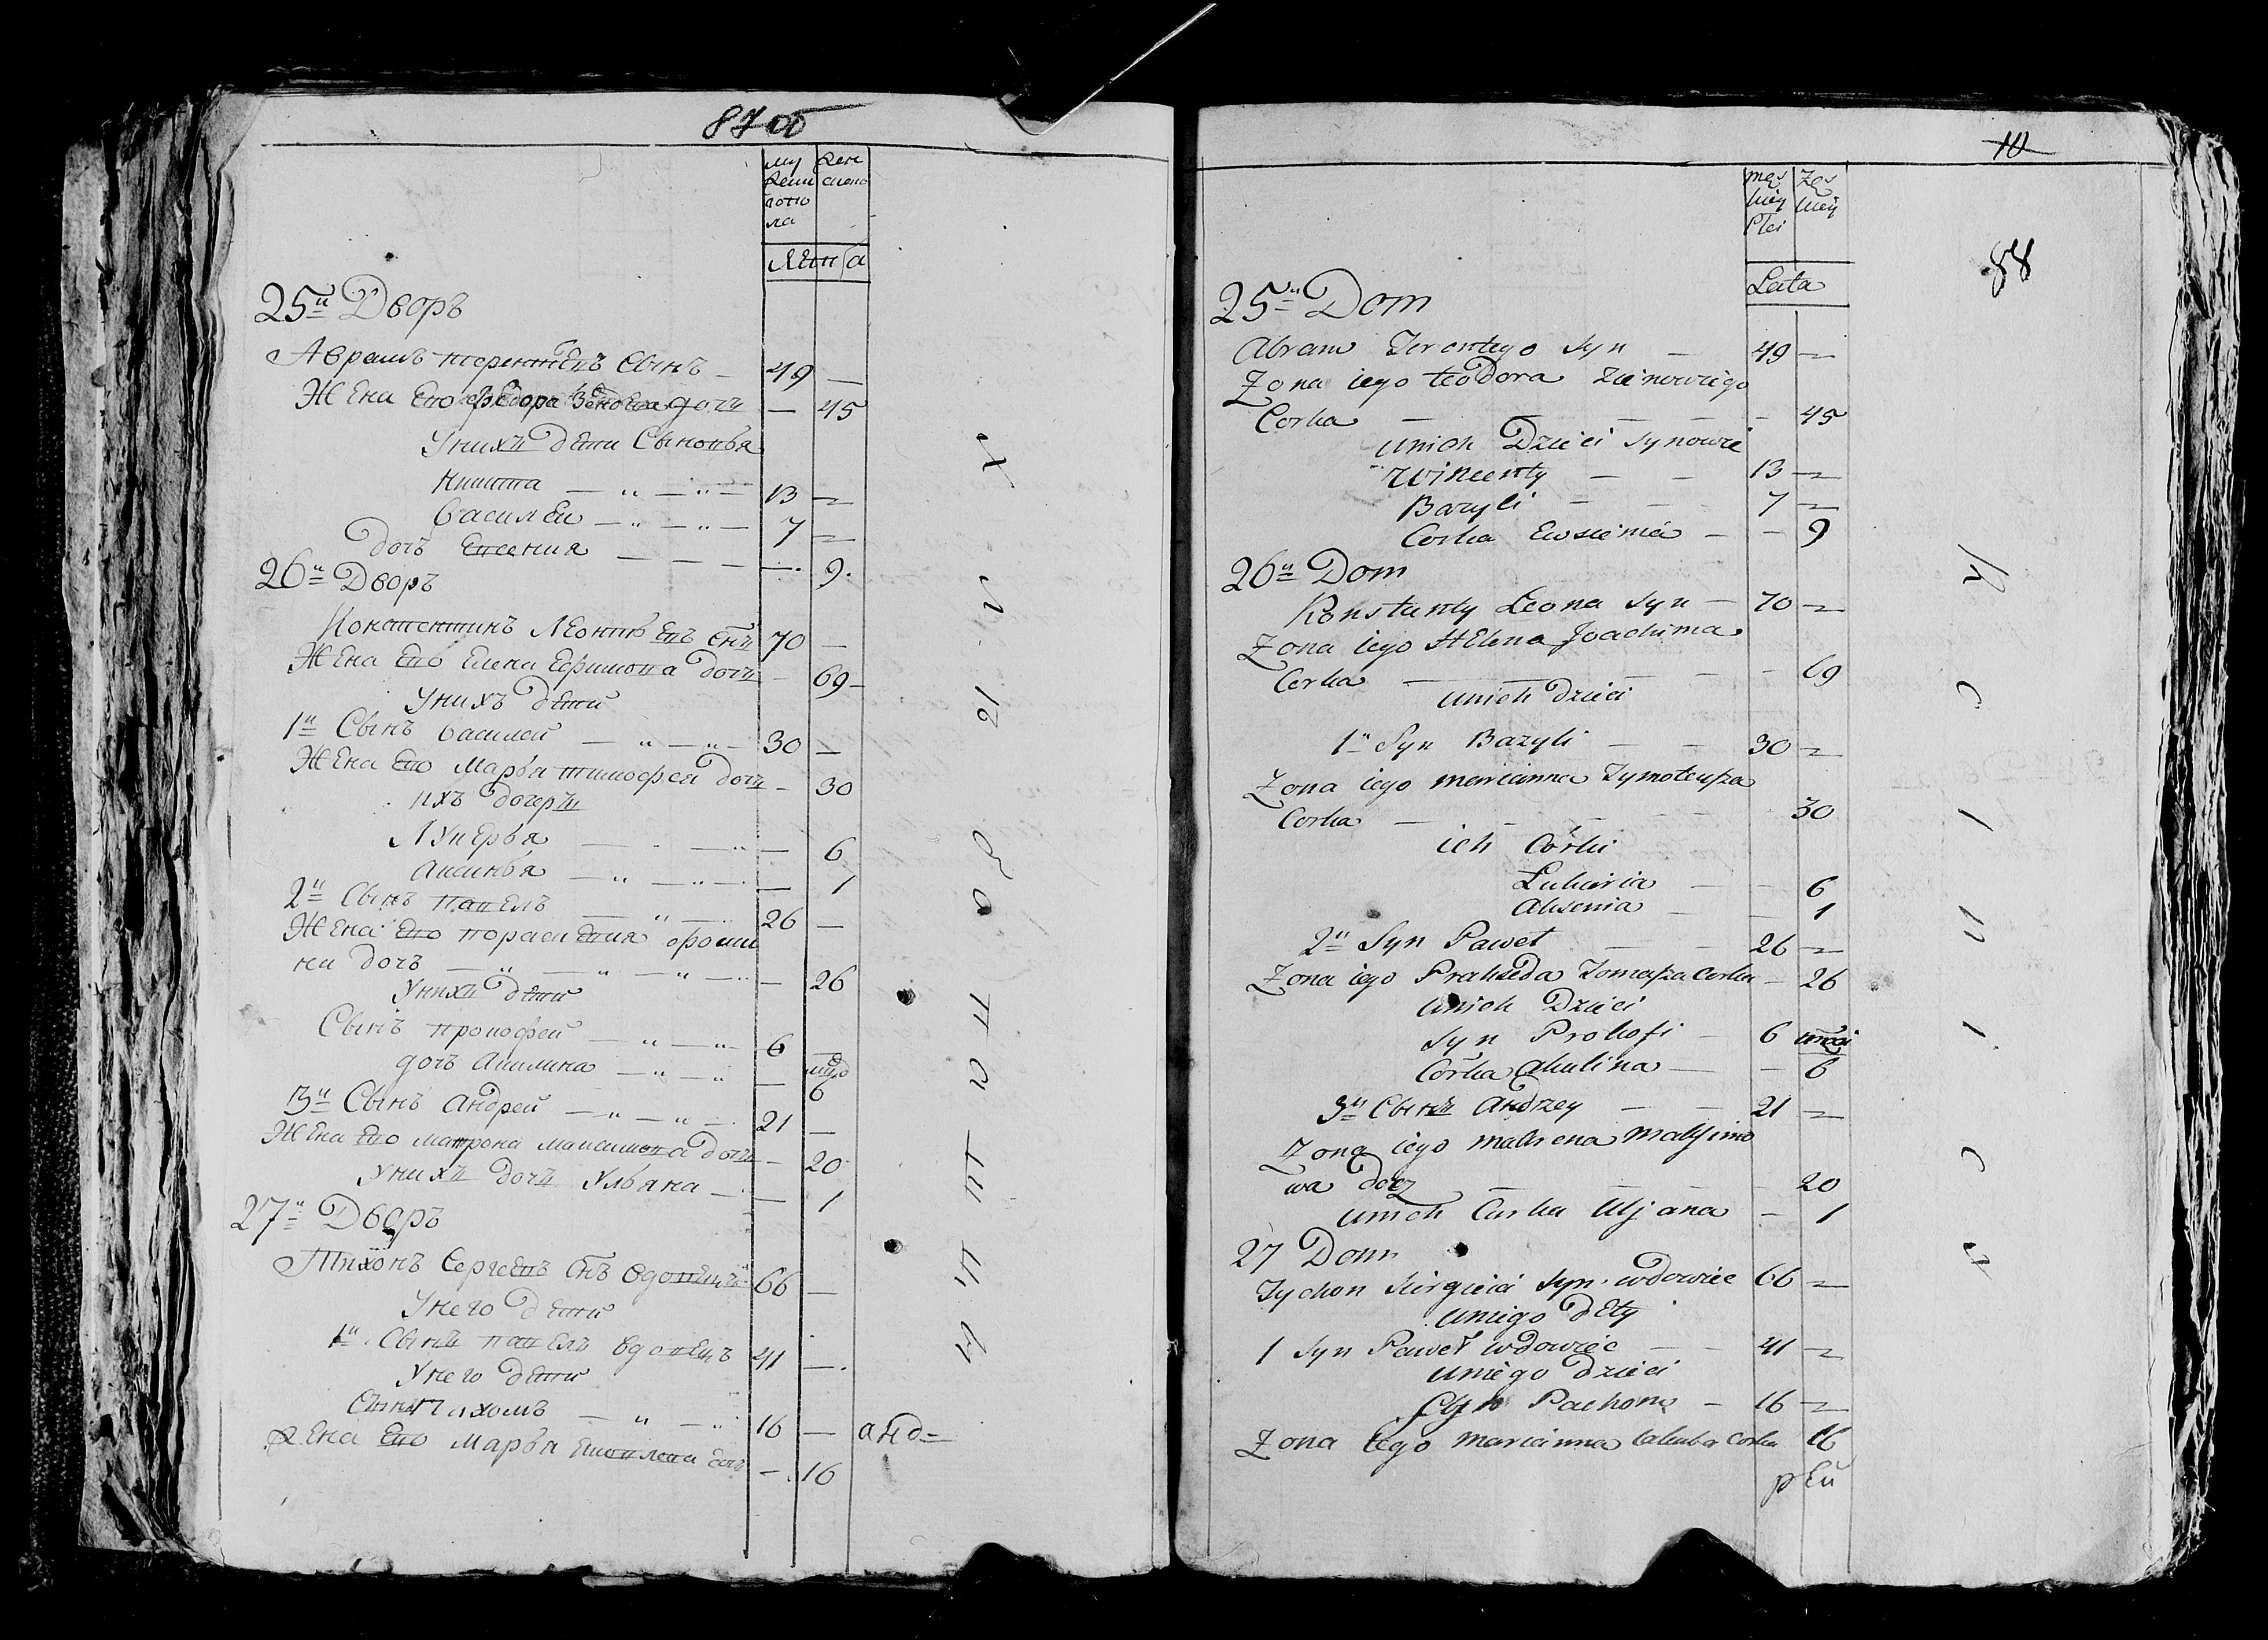 87 об
му
жеш
ского
ла
жен
скаго
Лѣта
25й Дворъ
Аврамъ терентіевъ Сынъ 49 —
Жена Его Ѳедора Зѣновева дочь — 45
У нихъ дѣти Сыновья
Никита — „ — „ — 13 —
Василѣи — „ — „ — 7 —
дочь Евсения — — — — 9.
26й Дворъ
Констентинъ Леонтіевъ снъ 70 —
Жена Его Елена Ефимова дочь — 69 —
У нихъ дѣти
1й Сынъ василей — „ — „ — 30 —
Жена Его Марья тимофея дочь — 30
ихъ дочеръ
Лукерья — — 6
аксинья — „ — „ — 1
2й Сынъ павелъ — „ — 26 —
Жена Его порасковия фоми
на дочь — „ — „ — „ — 26
У нихъ дѣти
Сынъ прокофей — „ — „ 6 —
дочь Акилина — „ — „ — 6
3й Сынъ андрей — „ — „ — 21 —
Жена Его матрона максимова дочь — 20
У нихъ дочь Ульяна — — 1
27й Дворъ
Тихонъ Сергѣевъ снъ вдовецъ 66 —
У него дѣти
1й Сынъ павелъ вдовецъ 41 —
У него дѣти
Сынъ Пахомъ — „ — „ 16 —
Жена Его Марья дочь — 16
анд=
10
88
męs
kiey
Płci
żeś
kiey
Lata
25й Dom
Abram Terentego Syn — 49 —
Żona iego teodora Zienowiego
Corka — — — — 45
unich Dzieci Synowie
Wincenty — — 13 —
Bazyli — — 7 —
Corka Ewsienia — — 9
26й Dom
Konstanty Leona Syn — 70 —
Żona iego HElena Joachima
Corka — — — — 69
unich dzieci
1й Syn Bazyli — — 30 —
Żona iego marianna Tymoteusza
Corka — — — 30
ich Córki
Lukeria — — 6
aksenia — — 1
2й Syn Paweł — — 26 —
Żona iego Prakseda Tomasza Corka — 26
unich Dzieci
Syn Prokofi — 6
Córka akulina — — 6
3й Сынъ andrzey — — 21 —
Żona iego matrena maksimo
wa docz — — — 20
unich Curka Uljana — 1
27 Dom
Tychon Siergieia Syn wdowiec 66 —
uniego dEty
1 Syn Paweł wdowiec — — 41 —
uniego dzieci
Syn Pachom — 16 —
Żona iego marianna Corka 16